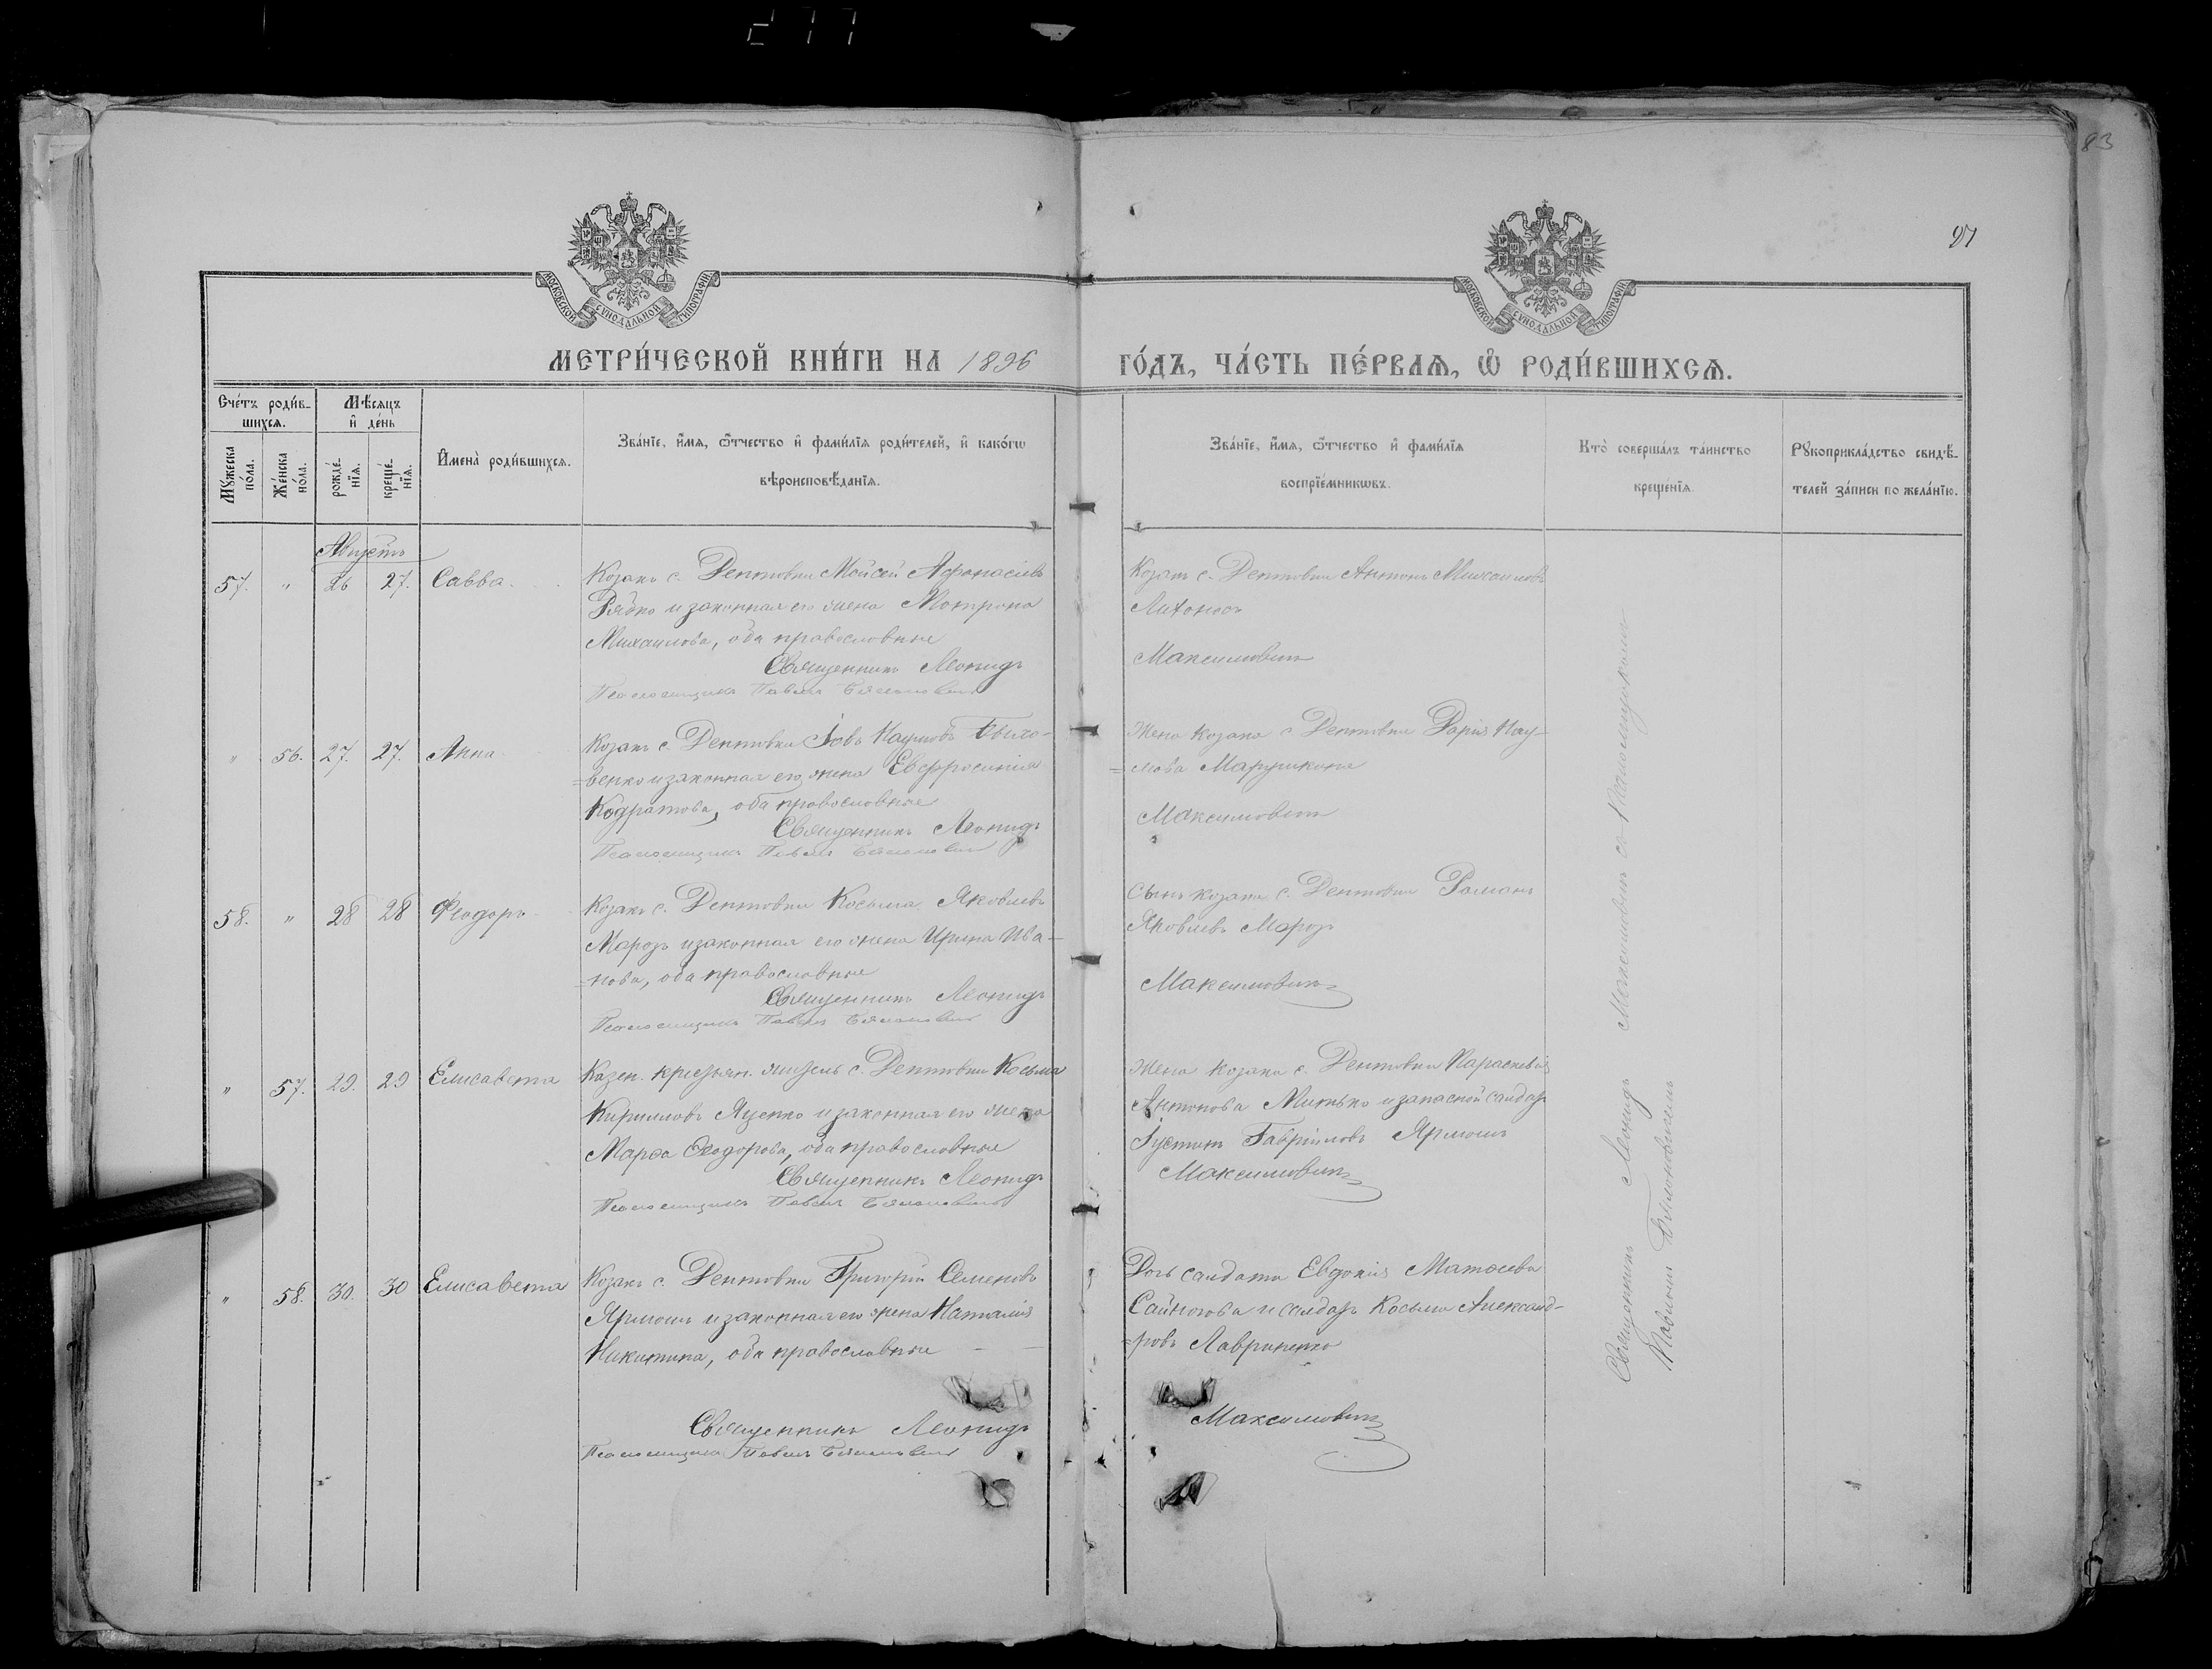 83
97
МОСКОВСКОЙ СѴНОДАЛЬНОЙ ТИПОГРАФІИ
МОСКОВСКОЙ СѴНОДАЛЬНОЙ ТИПОГРАФІИ
МЕТРИ́ЧЕСКОЙ КНИ́ГИ НА 1896 ГО́ДЪ, ЧА́СТЬ ПЕ́РВАѦ, Ѽ РОДИ́ВШИХСѦ.
Сче́тъ роди́вшихсѧ.
Мѣ́сѧцъ и҆ де́нь
Мꙋ́жеска по́ла.
Же́нска по́ла.
рожде́нїѧ.
креще́нїѧ.
И҆мена̀ роди́вшихсѧ.
Зва́нїе, и҆́мѧ, ѻ҆́тчество и҆ фами́лїѧ роди́телей, и҆ како́гѡ
вѣроисповѣ́данїѧ.
Зва́нїе, и҆́мѧ, ѻ҆́тчество и҆ фами́лїѧ
воспрїе́мникѡвъ.
Кто̀ соверша́лъ та́инство
креще́нїѧ.
Рꙋкоприкла́дство свидѣ́-
телей за́писи по жела́нїю.
Августъ
57. " 26 27. Савва.
Козакъ с. Дептовки Мойсей Афонасіевъ
Рядко и законная его жена Мотрона
Михаилова, оба православные
Священникъ Леонидъ
Псаломщикъ Павелъ
Козакъ с. Дептовки Антонъ Михаиловъ
Максимовичъ
" 56. 27. 27. Анна
Козакъ с. Дептовки Іовъ Наумовъ
=венко и законная его жена Евфросинія
Кодратова, оба православные
Священникъ Леонидъ
Псаломщикъ Павелъ
Жена козака с. Дептовки Дарія Нау-
=мова
Максимовичъ
58. " 28 28 Феодоръ
Козакъ с. Дептовки Косьма Яковлевъ
Морозъ и законная его жена Ирина Ива-
=нова, оба православные
Священникъ Леонидъ
Псаломщикъ Павелъ
Сынъ козака с. Дептовки Романъ
Яковлевъ Морозъ
Максимовичъ
" 57. 29. 29 Елисавета
Казен. крестьян. житель с. Дептовки Косьма
Кирилловъ Яценко и законная его жена
Марѳа Ѳеодорова, оба православные
Священникъ Леонидъ
Псаломщикъ Павелъ
Жена козака с. Дептовки Параскевія
Антонова Митько и запасной солдатъ
Іустинъ Гавріиловъ Ярмошъ
Максимовичъ
" 58. 30. 30 Елисавета
Козакъ с. Дептовки Григорій Семеновъ
Ярмошъ и законная его жена Наталія
Никитина, оба православные
Священникъ Леонидъ
Псаломщикъ Павелъ
Дочь солдата Евдокія Матѳеева
и солдатъ Косьма Александ-
=ровъ Лавриненко
Максимовичъ
Священникъ Леонидъ Максимовичъ съ Псаломщикомъ